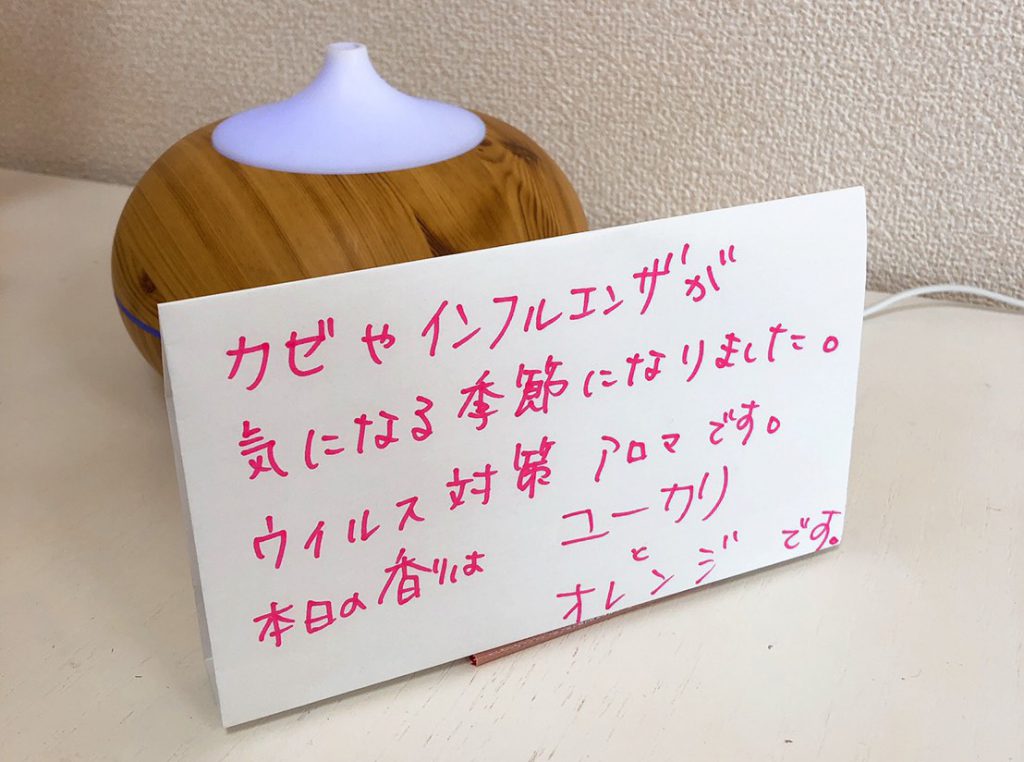 カゼやインフルエンザが
気になる季節になりました。
ウイルス対策 アロマです。
本日の香りは ユーカリ
と
オレンジ です。